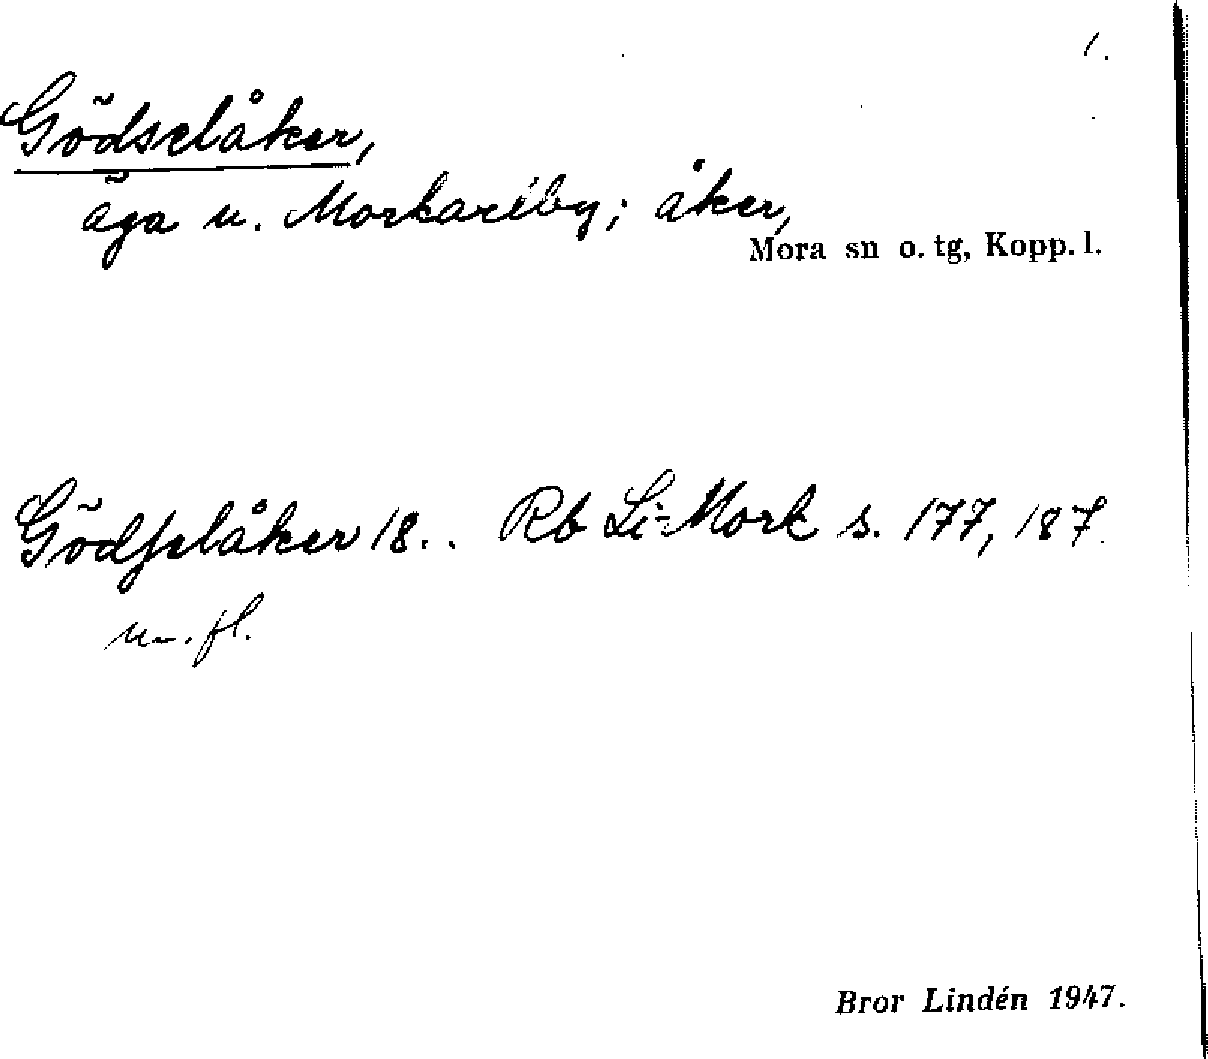 1.
Gödselåker,
äga u. Morkarlby; åker,
Mora sn o. tg, Kopp. l.
Gödſelåker 18.. Rb Li-Mork s. 177, 187
m. fl.
Bror Lindén 1947.